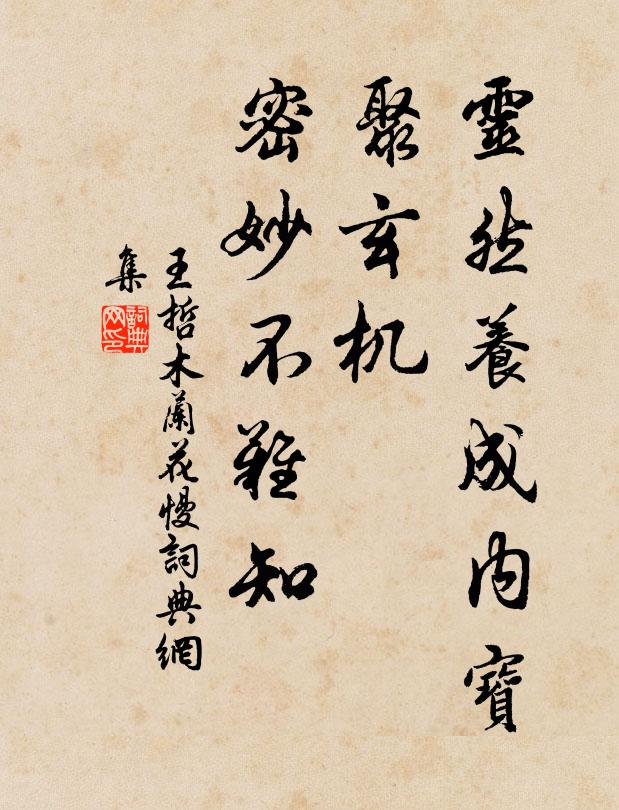 靈然養成内寶
聚玄机
密妙不難知
王哲木蘭花慢詞典網
集
詞典
网印